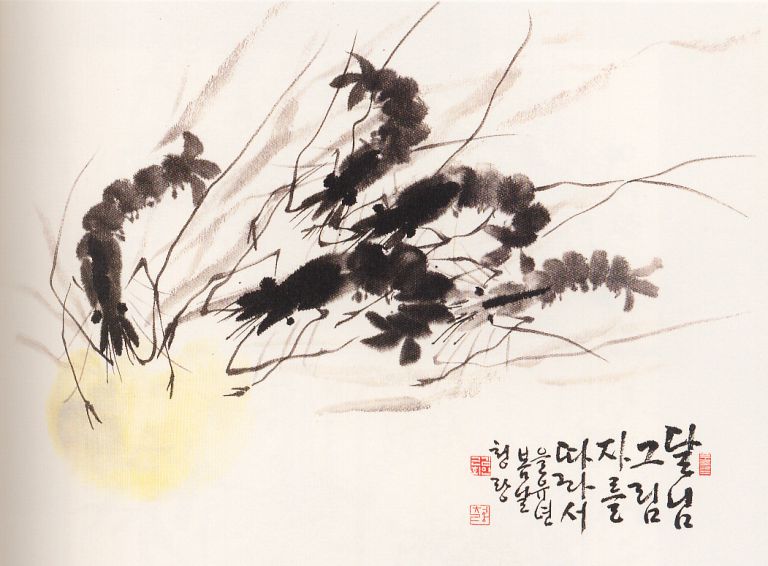 달님
그림
자를
따라서
을유년
봄날
청랑